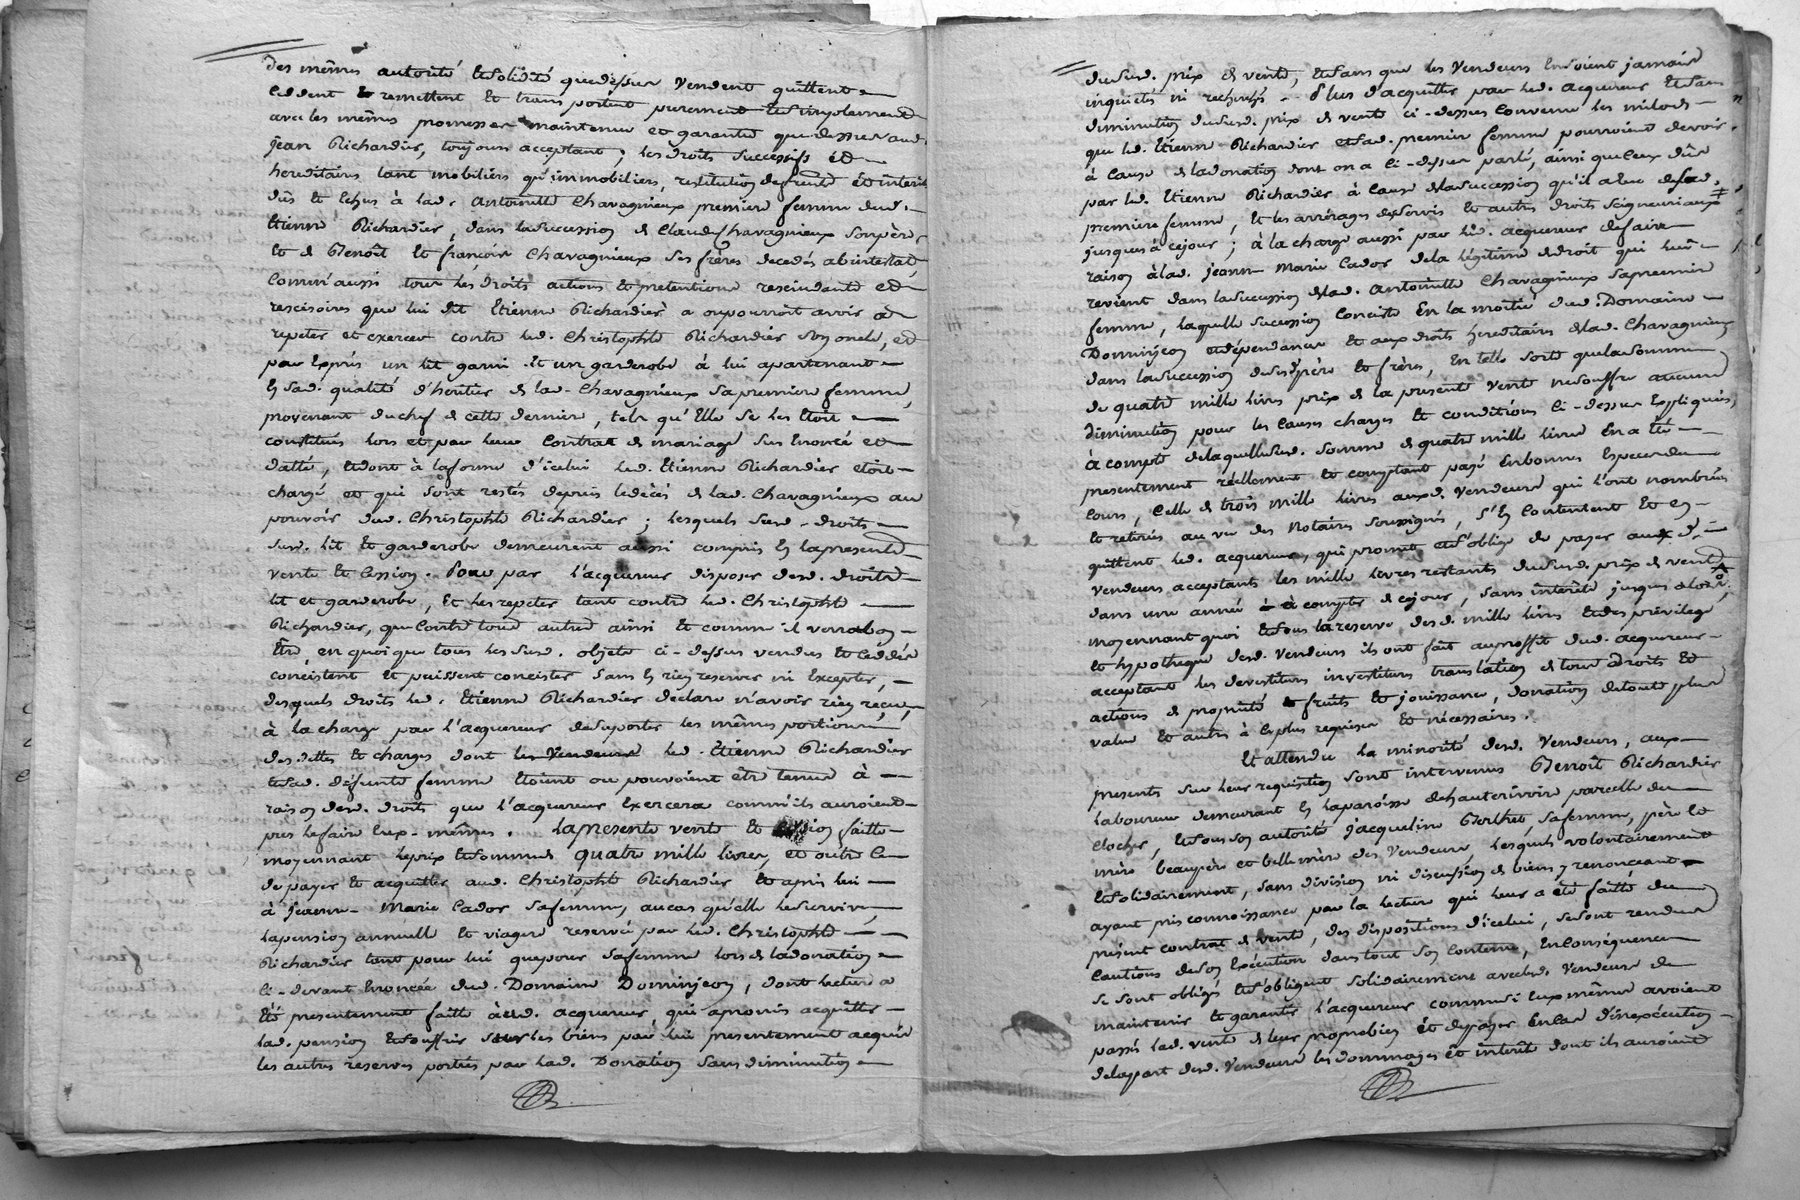 des mêmes autorité & solidité que dessus vendent quittent
cedent & remettent et transportent purement & simplement
avec les mêmes promesses maintenue et garantie que dessus aud.
jean Richardier, toujours acceptant ; les droits successifs et
hereditaires tant mobiliers qu'immobiliers, restitution de fruits et interets
dûs et echus à lad. Antoinette Chavagnieux premiere femme dud.
Etienne Richardier, dans la succession de Claude Chavagnieux son père
et de Benoît et françois Chavagnieux ses frères decedés abintestat,
comm'aussi tous les droits actions et pretentions rescindants et
rescisoires que lui dit Etienne Richardier a ou pourroit avoir à
repeter et exercer contre led. Christophle Richardier son oncle, et
par exprés un lit garni et un garderobe à lui apartenant
en sad. qualité d'heritier de lad. Chavagnieux sa premiere femme,
provenant du chef de cette derniere, tels qu'Elle se les étoit
constitués lors et par leur Contrat de mariage sus enoncé et
datté, & dont à la forme d'icelui led. Etienne Richardier étoit
chargé et qui sont restés depuis le décès de lad. Chavagnieux au
pouvoir dud. Christophle Richardier ; lesquels susd. droits
susd. lit et garderobe demeurent aussi compris en la presente
vente et cession. Pour par l'acquereur disposer desd. droits
lit et garderobe, et les repeter tant contre led. Christophle
Richardier, que contre tous autres ainsi et comme il verra bon
être, en quoi que tous les susd. objets ci-dessus vendus et cédés
concistent et puissent concister sans en rien reserver ni excepter,
desquels droits led. Etienne Richardier declare n'avoir rien reçu,
à la charge par l'acquereur de suporter les mêmes portions
des dettes et charges dont les vendeurs led. Etienne Richardier
& sad. défunte femme étoient ou pouvoient être tenus à
raison desd. droits que l'acquereur exercera comm'ils auroient
pu le faire eux-mêmes. La presente vente et cession faitte
moyennant le prix & somme de quatre mille livres, et outre ce
de payer et acquitter aud. Christophle Richardier et après lui
à Jeanne-Marie Cador sa femme, au cas qu'elle le survive,
la pension annuelle et viagere reservée par led. Christophle
Richardier tant pour lui que pour sa femme lors de la donation
ci-devant enoncée dud. Domaine Dominjeon, dont lecture a
été presentement faitte aud. acquereur qui a promis acquitter
lad. pension & souffrir sur les biens par lui presentement acquis
les autres reserves portées par lad. Donation sans diminution
du susd. prix de vente, & sans que les Vendeurs en soient jamais
inquiétés ni recherchés. Plus d'acquitter par led. acquereur & sans
diminution du susd. prix de vente ci-dessus convenu les milods
que led. Etienne Richardier & sad. premiere femme pourroient devoir
à cause de la donation dont on a ci-dessus parlé, ainsi que ceux dûs
par led. Etienne Richardier à cause de la succession qu'il a eue de sad.
premiere femme, et les arrérages des servis et autres droits seigneuriaux
jusques à ce jour ; à la charge aussi par led. acquereur de faire
raison à lad. jeanne Marie Cador de la légitime de droit qui lui
revient dans la succession de lad. Antoinette Chavagnieux sa premiere
femme, laquelle succession conciste en la moitié dud. Domaine
Dominjeon & dépendances et aux droits hereditaires de lad. Chavagnieux
dans la succession de ses père et frères, en telle sorte que la somme
de quatre mille livres prix de la presente vente ne souffre aucune
diminution pour les causes charges et conditions ci-dessus expliqués,
à compte de laquelle susd. somme de quatre mille livres en a été
presentement réellement et comptant payé en bonnes especes du
cours, celle de trois mille livres auxd. vendeurs qui l'ont nombrée
et retirée au vu des Notaires soussignés, s'en contentent et en
quittent led. acquereur, qui promet & s'oblige de payer auxd.
vendeurs acceptants les mille livres restants du susd. prix de vente
dans une année à compter de ce jour, sans interêts jusques alors,
moyennant quoi & sous la reserve desd. mille livres & des privilege
et hypotheque desd. vendeurs ils ont fait au proffit dud. acquereur
acceptant les devestitures investitures translation de tous droits et
actions de propriété fruits et jouissance, donation de toute plus
value et autres à ce plus requises et nécessaires.
Et attendu la minorité desd. Vendeurs, aux
presents sur leur requisition sont intervenus Benoît Richardier
laboureur demeurant en la paroisse de hauterivoire parcelle du
clocher, & sous son autorité jacqueline Berthet, sa femme, père et
mère beaupère et bellemère des Vendeurs, lesquels volontairement
& solidairement, sans division ni discussion de biens y renonceant
ayant pris connoissance par la lecture qui leur a été faitte du
présent contrat de vente, des dispositions d'icelui, se sont rendus
cautions de son exécution dans tout son contenu, en conséquence
se sont obligés & s'obligent solidairement avec lesd. vendeurs de
maintenir et garantir l'acquereur comme si eux mêmes avoient
passés lad. vente de leur propre bien et de payer en cas d'inexécution
de la part desd. Vendeurs les dommages et interêts dont ils auroient